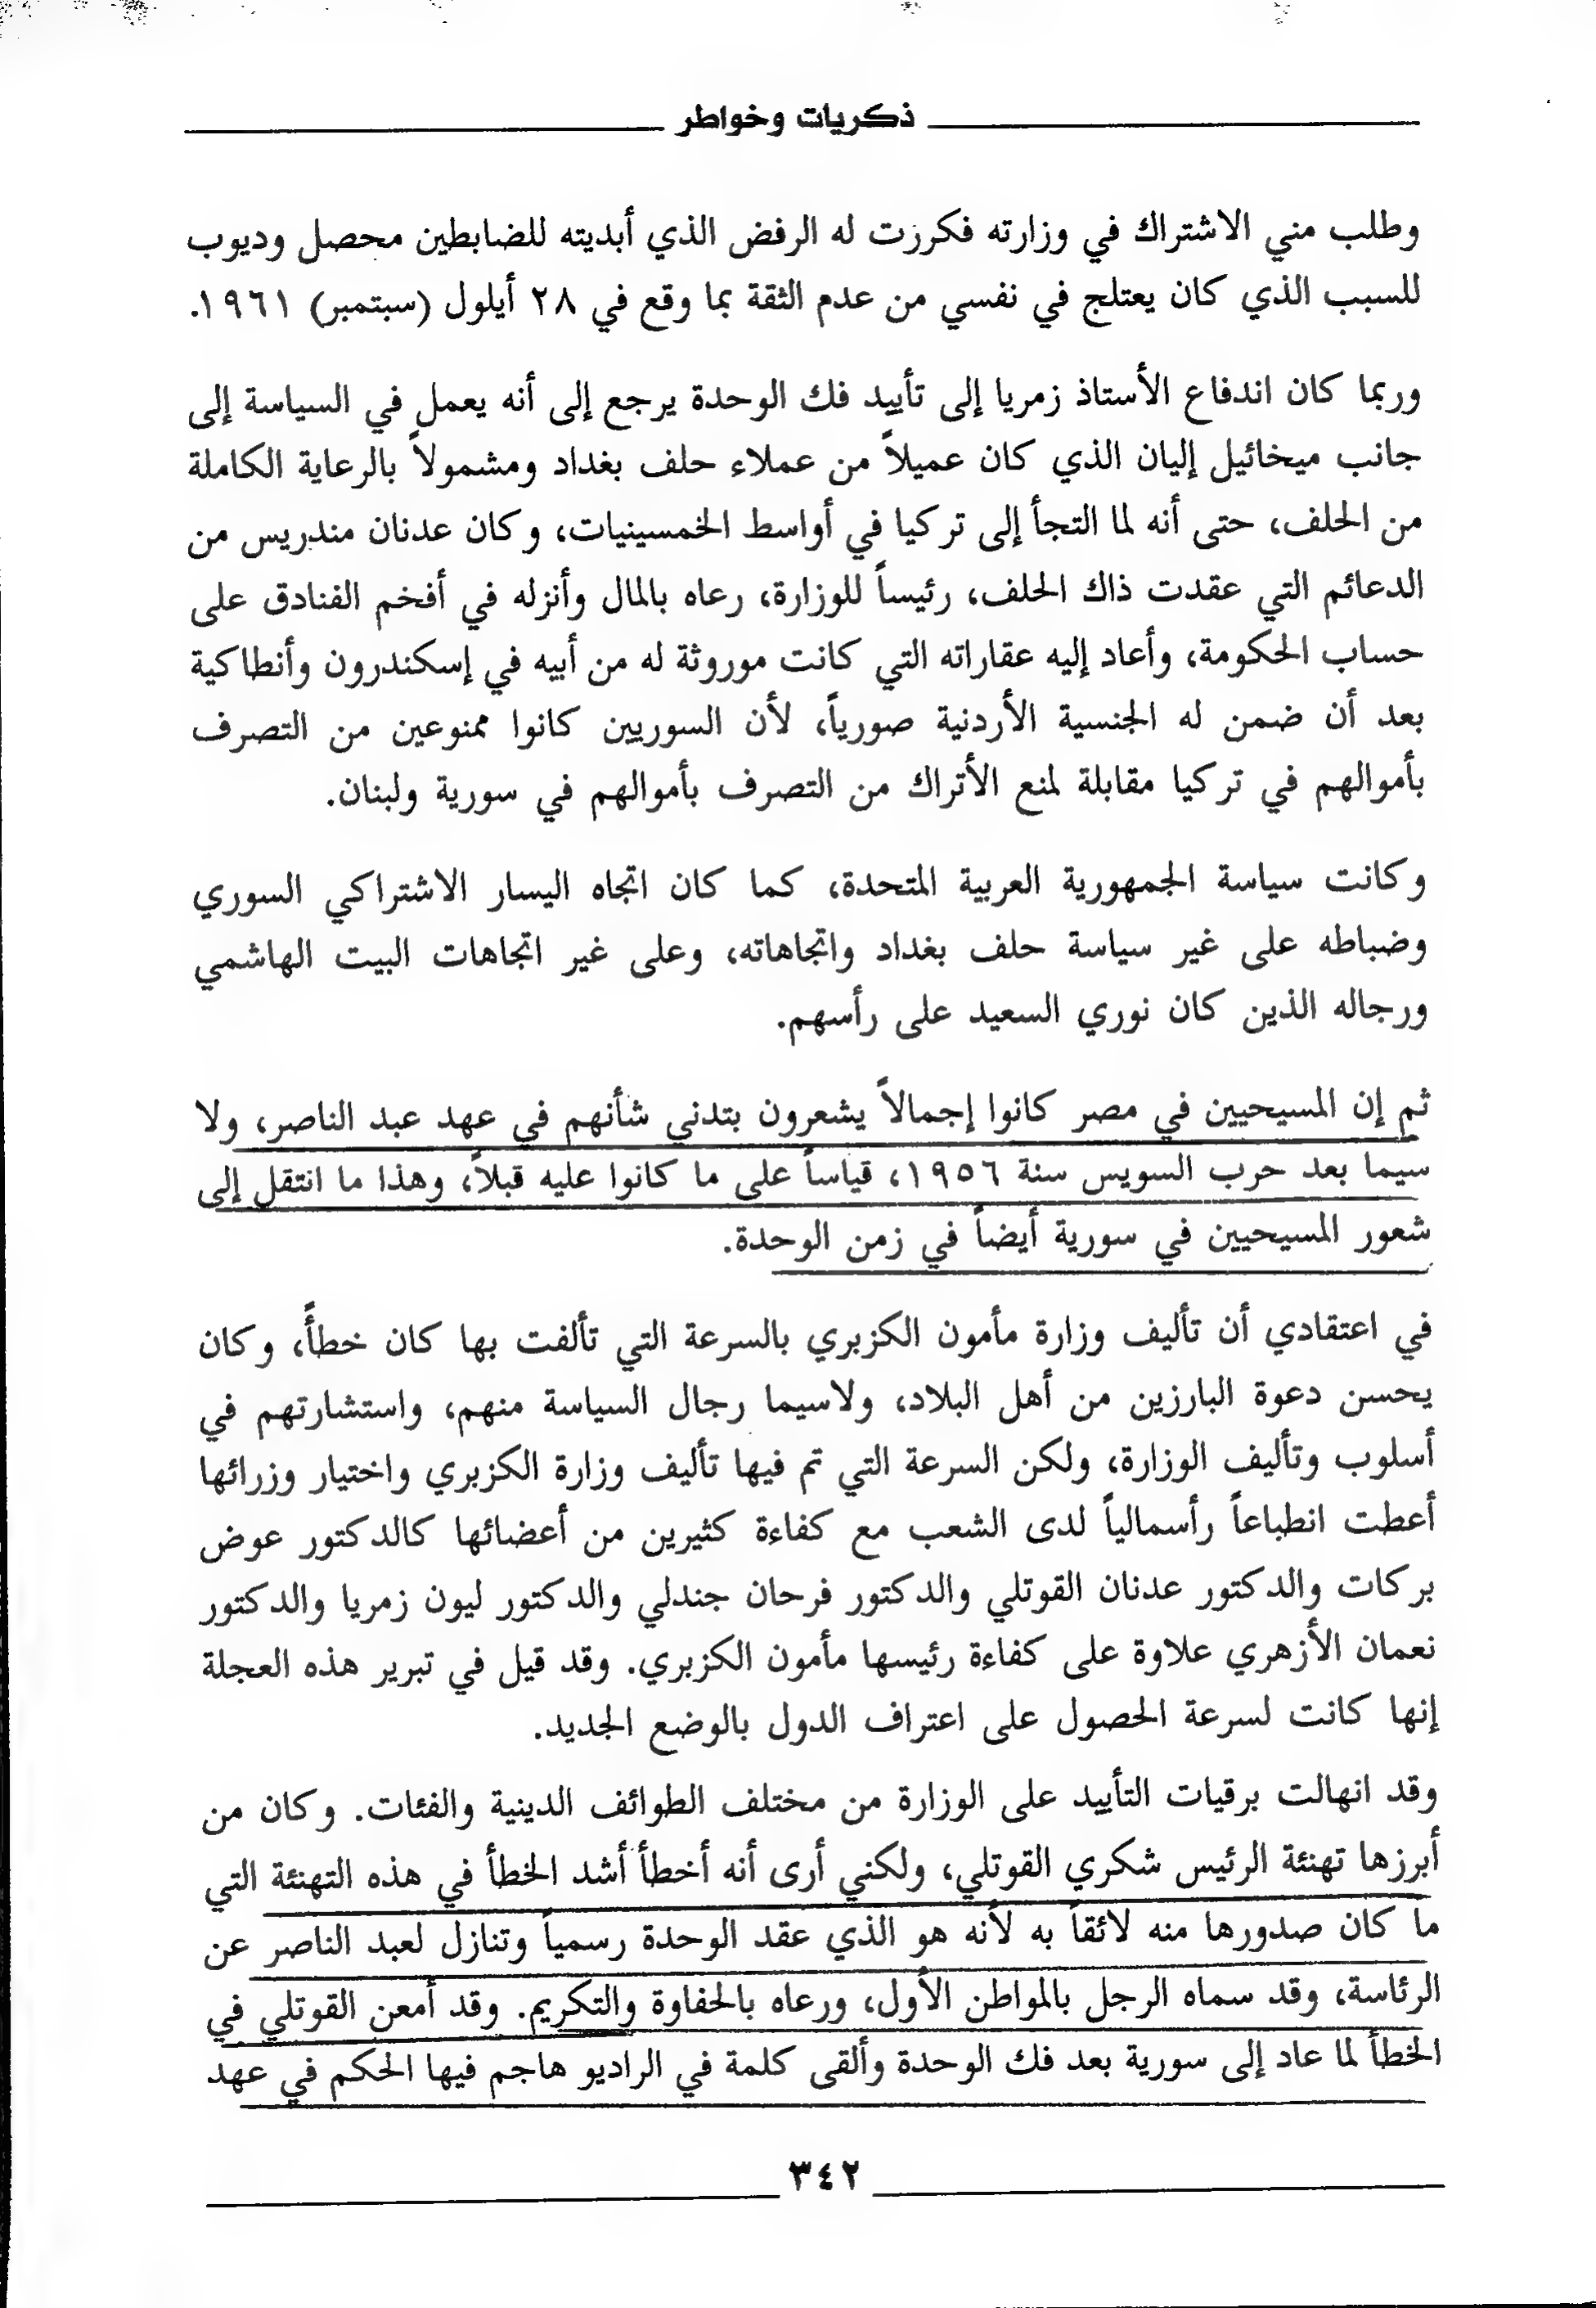 ذكريات وخواطر
وطلب مني الاشتراك في وزارته فكررت له الرفض الذي أبديته للضابطين محصل وديوب
للسبب الذي كان يعتلج في نفسي من عدم الثقة بما وقع في ٢٨ أيلول (سبتمبر) ١٩٦١.
وربما كان اندفاع الأستاذ زمريا إلى تأييد فك الوحدة يرجع إلى أنه يعمل في السياسة إلى
جانب ميخائيل إليان الذي كان عميلاً من عملاء حلف بغداد ومشمولاً بالرعاية الكاملة
من الحلف، حتى أنه لما التجأ إلى تركيا في أواسط الخمسينيات، وكان عدنان مندريس من
الدعائم التي عقدت ذاك الحلف، رئيساً للوزارة، رعاه بالمال وأنزله في أفخم الفنادق على
حساب الحكومة، وأعاد إليه عقاراته التي كانت موروثة له من أبيه في إسكندرون وأنطاكية
بعد أن ضمن له الجنسية الأردنية صورياً، لأن السوريين كانوا ممنوعين من التصرف
بأموالهم في تركيا مقابلة لمنع الأتراك من التصرف بأموالهم في سورية ولبنان.
وكانت سياسة الجمهورية العربية المتحدة، كما كان اتجاه اليسار الاشتراكي السوري
وضباطه على غير سياسة حلف بغداد واتجاهاته، وعلى غير اتجاهات البيت الهاشمي
ورجاله الذين كان نوري السعيد على رأسهم.
ثم إن المسيحيين في مصر كانوا إجمالاً يشعرون بتدني شأنهم في عهد عبد الناصر، ولا
سيما بعد حرب السويس سنة ١٩٥٦، قياساً على ما كانوا عليه قبلاً، وهذا ما انتقل إلى
شعور المسيحيين في سورية أيضاً في زمن الوحدة.
في اعتقادي أن تأليف وزارة مأمون الكزبري بالسرعة التي تألفت بها كان خطأً، وكان
يحسن دعوة البارزين من أهل البلاد، ولاسيما رجال السياسة منهم، واستشارتهم في
أسلوب وتأليف الوزارة، ولكن السرعة التي تم فيها تأليف وزارة الكزبري واختيار وزرائها
أعطت انطباعاً رأسمالياً لدى الشعب مع كفاءة كثيرين من أعضائها كالدكتور عوض
بركات والدكتور عدنان القوتلي والدكتور فرحان جندلي والدكتور ليون زمريا والدكتور
نعمان الأزهري علاوة على كفاءة رئيسها مأمون الكزبري. وقد قيل في تبرير هذه العجلة
إنها كانت لسرعة الحصول على اعتراف الدول بالوضع الجديد.
وقد انهالت برقيات التأييد على الوزارة من مختلف الطوائف الدينية والفئات. وكان من
أبرزها تهنئة الرئيس شكري القوتلي، ولكني أرى أنه أخطأ أشد الخطأ في هذه التهنئة التي
ما كان صدورها منه لائقاً به لأنه هو الذي عقد الوحدة رسمياً وتنازل لعبد الناصر عن
الرئاسة، وقد سماه الرجل بالمواطن الأول، ورعاه بالحفاوة والتكريم. وقد أمعن القوتلي في
الخطأ لما عاد إلى سورية بعد فك الوحدة وألقى كلمة في الراديو هاجم فيها الحكم في عهد
٣٤٢